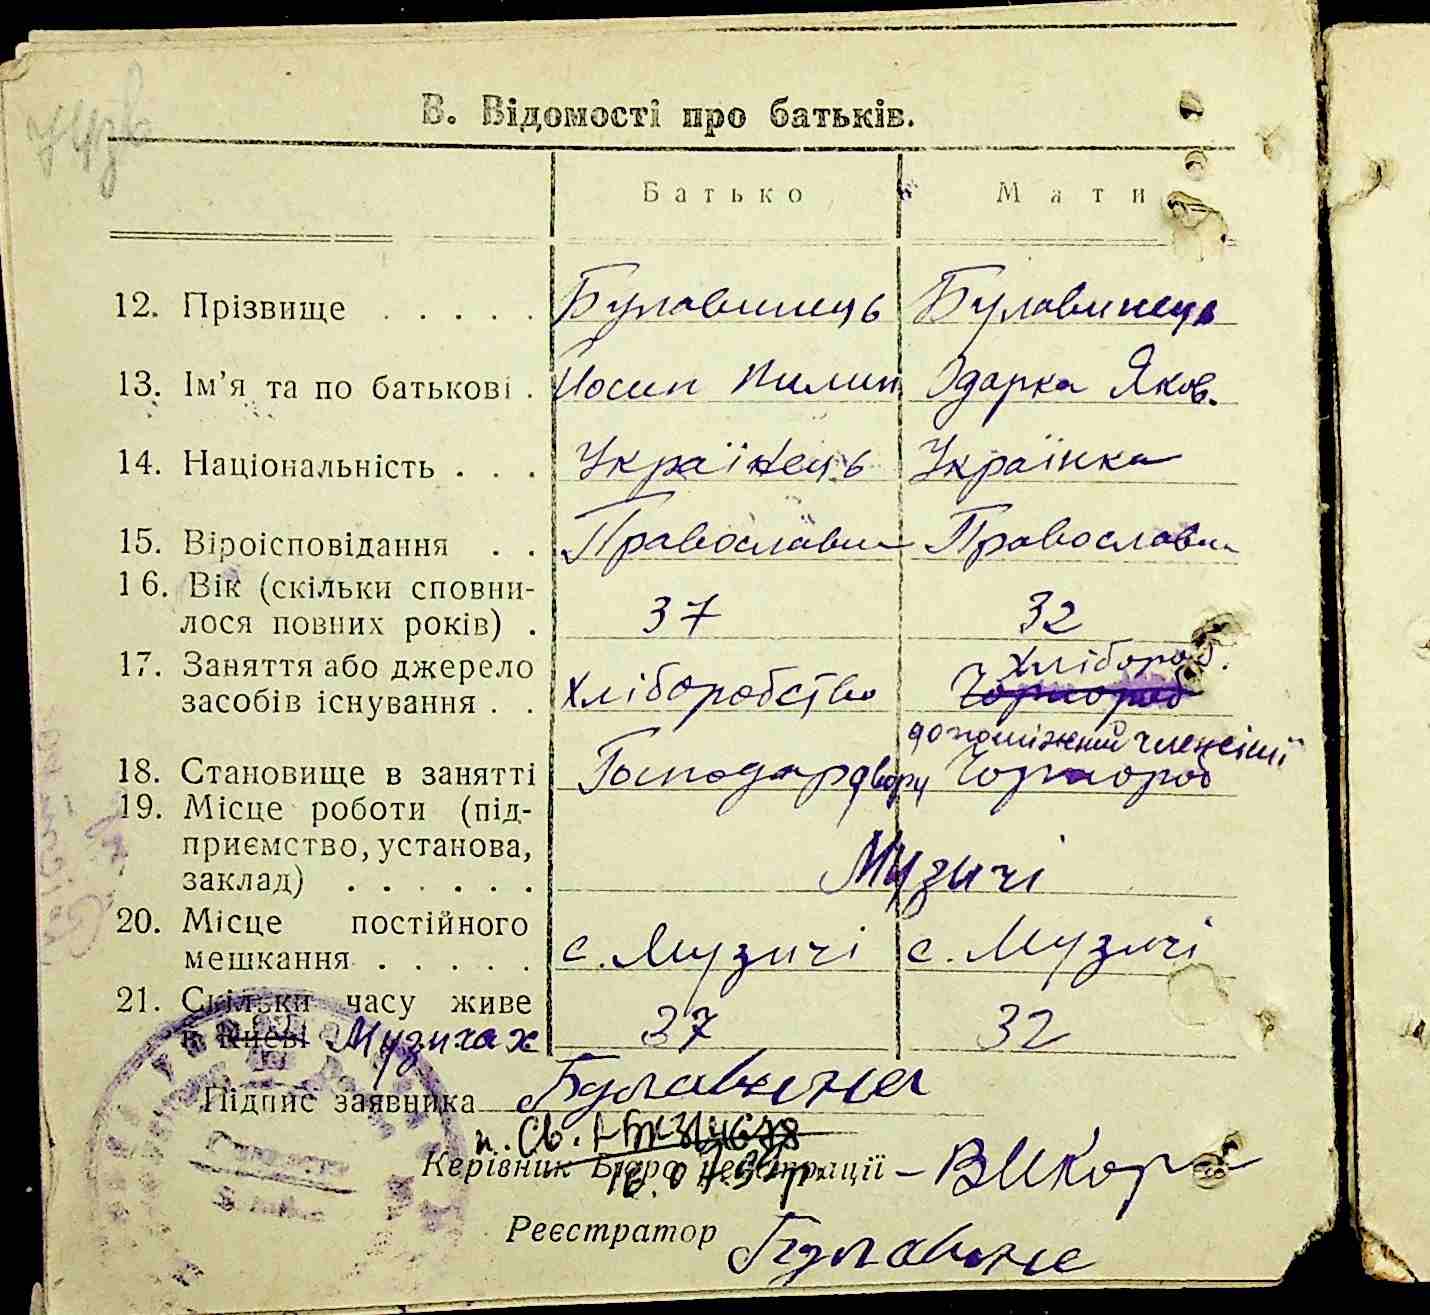 В. Відомості про батьків.
Батько Мати
12. Прізвище . . . . . Булавинець Булавинець
13. Ім'я та по батькові . Йосип Пилип Одарка Яков.
14. Національність . . . Українець Українка
15. Віроісповідання . . Православн Православн
16. Вік (скільки сповни-
лося повних років) . 37 32
17. Заняття або джерело Хлібороб.
засобів існування . . Хліборобство
допоміжний член сімї
18. Становище в занятті Господар двору
19. Місце роботи (під-
приємство, установа,
заклад) . . . . . . Музичі
20. Місце постійного
мешкання . . . . . с. Музичі с. Музичі
21. Скільки часу живе
в Києві Музичах 37 32
Підпис заявника Булавине
Керівник Бюро реєстрації
Реєстратор Булавине